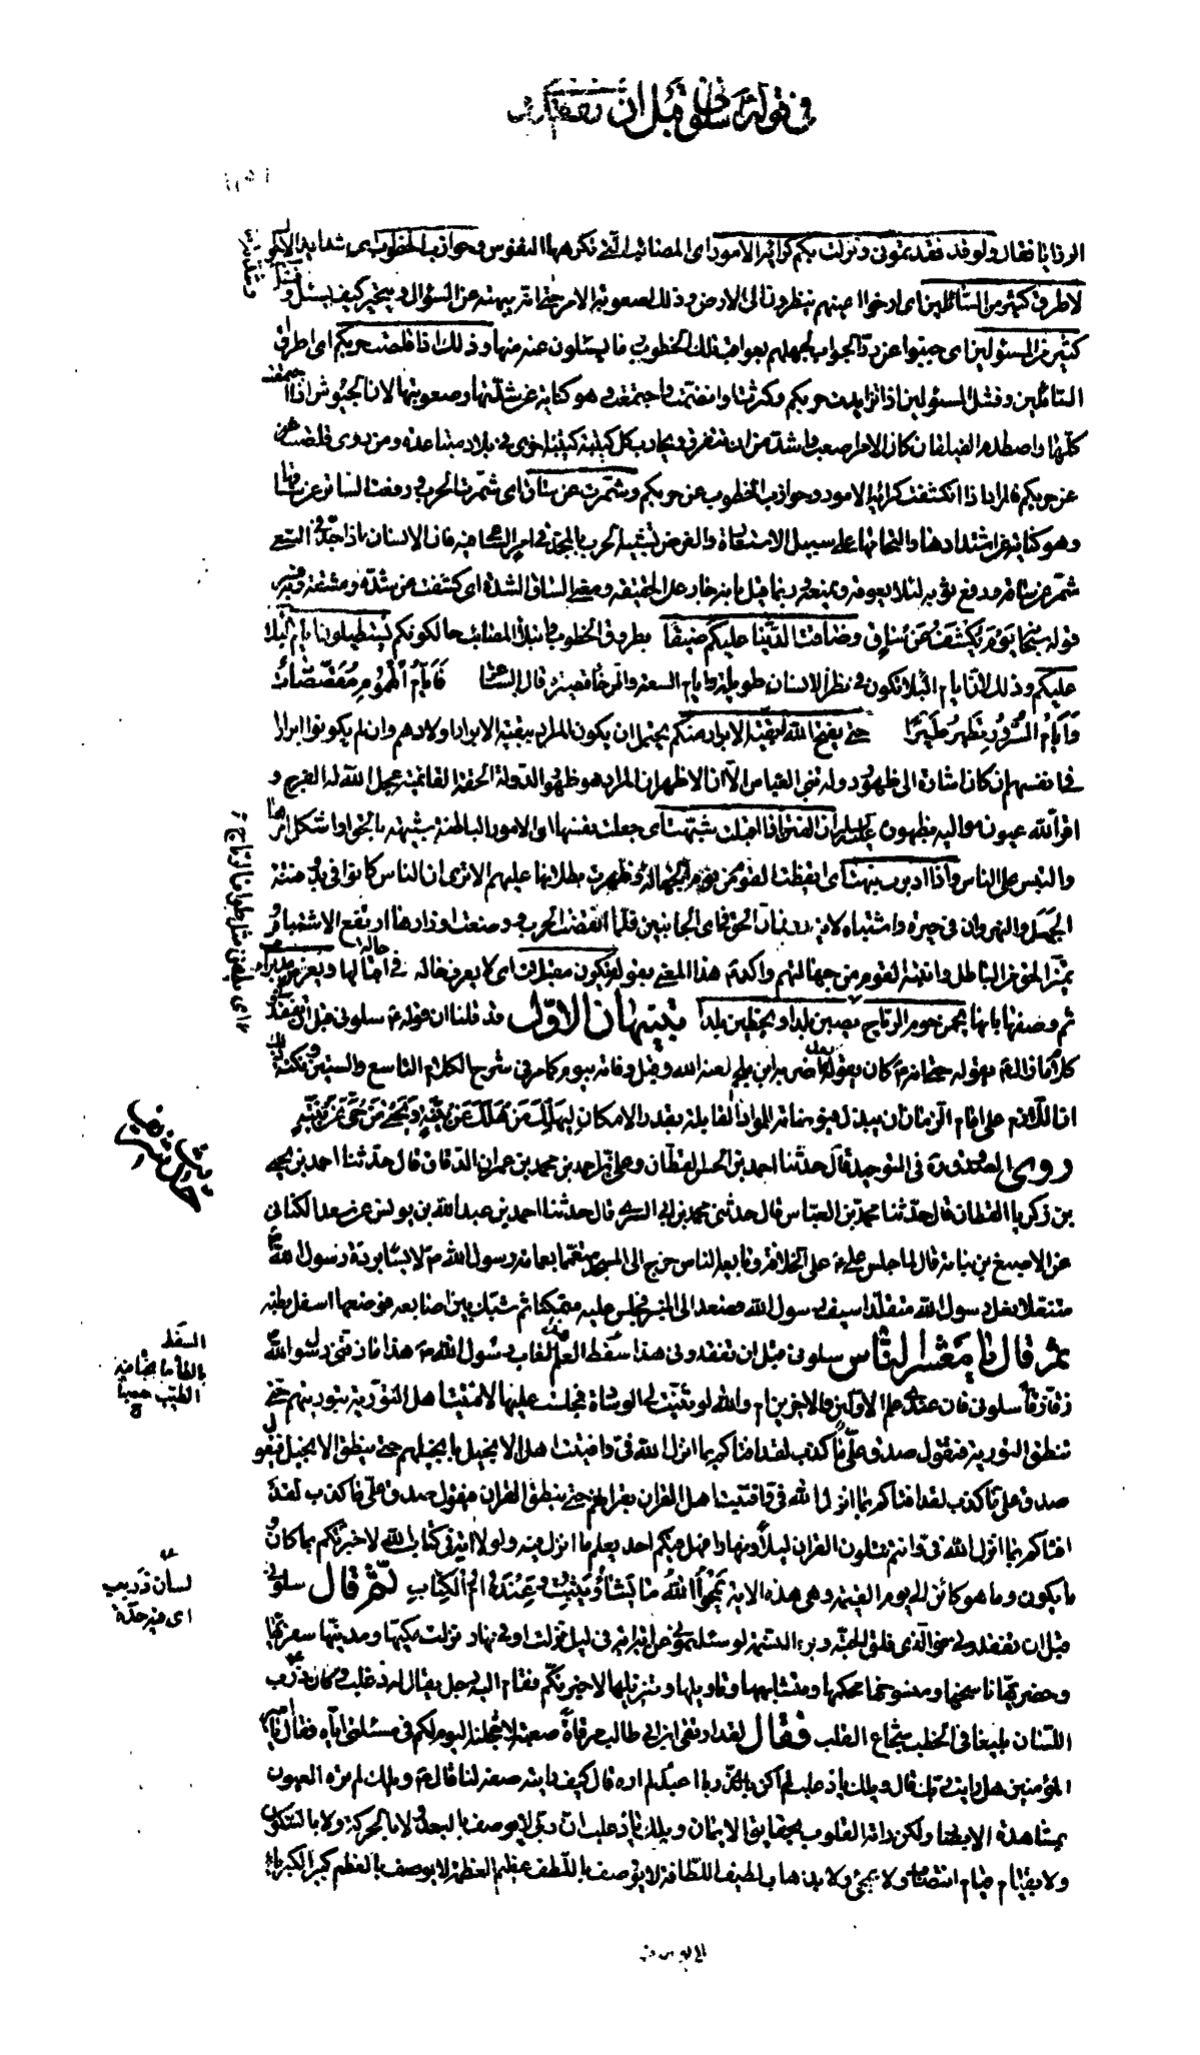 في قوله سلوني قبل ان تفقدوني
الرزايا فقال ولو قد فقدتموني ونزلت بكم كرائه الامور اى المصائب التي تكرهها النفوس وحوازب الخطوب اى شدايد الامور
لاطرق كثير من السائلين اى ارخوا اعينهم ينظرون الى الارض وذلك لصعوبة الامر حتى انه يبهته عن السؤال ويتحير كيف يسئل وفشل
كثير من المسئولين اى جبنوا عن رد الجواب لجهلهم بعواقب تلك الخطوب وما يسئلون عنه منها وذلك اذا قلصت حربكم اى اطراق
السائلين وفشل المسئولين اذا تزايدت حربكم وكثرت وانضمت واجتمعت وهو كناية عن شدتها وصعوبتها لان الجيوش اذا اجتمعت
كلها واصطدم الفيلقان كان الامر اصعب واشد من ان تتفرق ويحارب كل كتيبة كتيبة اخرى في بلاد متباعدة ومن روى قلصت عن
عن حربكم فالمراد اذا انكشفت كرائه الامور وحوازب الخطوب عن حربكم وشمرت عن ساق اى شمرت الحرب ورفعت الساتر عن ساقها
وهو كناية عن اشتدادها والتحامها على سبيل الاستعارة والغرض تشبيه الحرب بالمجد في امر الساعى فيه فان الانسان اذا جد في السعى
شمر عن ساقه ورفع ثوبه لئلا يعوقه ويمنعه وربما قيل بانه جار على الحقيقة ومعنى الساق الشدة اى كشفت عن شدة ومشقة وفسر
قوله سبحانه يوم يكشف عن ساق وضاقت الدنيا عليكم ضيقا بطروق الخطوب وابتلاء المصائب حالكونكم تستطيلون ايام البلاء
عليكم وذلك لان ايام البلاء تكون في نظر الانسان طويلة وايام السعة والرخاء قصيرة قال الشاعر فايام الهموم مقصصات
وايام السرور تطير طيرا حتى يفتح الله لبقية الابرار منكم يحتمل ان يكون المراد ببقية الابرار اولادهم وان لم يكونوا ابرارا
في انفسهم ان كان اشارة الى ظهور دولة بني العباس الا ان الاظهر ان المراد هو ظهور الدولة الحقة القائمية عجل الله له الفرج و
اقر الله عيون مواليه بظهوره عليه السلام ان الفتن اذا اقبلت شبهت اى جعلت نفسها او الامور الباطلة شبيهة بالحق او اشكل امرها
والتبس على الناس واذا ادبرت نبهت اى ايقظت القوم من نوم الجهالة وظهرت بطلانها عليهم الا ترى ان الناس كانوا في بدو فتنة
الجمل والنهروان في حيرة واشتباه لا يدرون ان الحق في اى الجانبين فلما انقضت الحرب ووضعت اوزارها ارتفع الاشتباه و
يميز الحق من الباطل وانتبه القوم من جهالتهم واكد هذا المعنى بقوله ينكرن مقبلات اى لا يعرف حالهن في اقبالها ويعرفن مدبرات
ثم وصفها بانها يحمن حوم الرياح يصبن بلدا ويخطين بلدا تنبيهان الاول قد قلنا ان قوله سلوني قبل ان تفقدوني
كلام ما زال يقوله حتى انه كان يقوله بعد ما ضربه ابن ملجم لعنه الله وقبل وفاته بيوم كما مر في شرح الكلام التاسع والستين ونكتة ذلك
ان اللازم على امام الزمان ان يبذل فيوضاته للمواد القابلة بقدر الامكان ليهلك من هلك عن بينة ويحيى من حى عن بينة
روى الصدوق في التوحيد قال حدثنا احمد بن الحسن القطان وعلي بن احمد بن محمد بن عمران الدقاق قال حدثنا احمد بن يحيى
بن زكريا القطان قال حدثنا محمد بن العباس قال حدثني محمد بن ابي السري قال حدثنا احمد بن عبد الله بن يونس عن سعد الكناني
عن الاصبغ بن نباتة قال لما جلس علي ع على الخلافة وبايعه الناس خرج الى المسجد متعمما بعمامة رسول الله ص لابسا بردة رسول الله ص
متنعلا نعل رسول الله متقلدا سيف رسول الله فصعد الى المنبر فجلس عليه متمكنا ثم شبك بين اصابعه فوضعها اسفل بطنه
ثم قال يا معشر الناس سلوني قبل ان تفقدوني هذا سفط العلم هذا لعاب رسول الله ص هذا ما زقني رسول الله ص
زقا زقا سلوني فان عندي علم الاولين والاخرين ام والله لو ثنيت لي الوسادة فجلست عليها لافتيت اهل التورية بتوريتهم حتى
تنطق التورية فتقول صدق علي ما كذب لقد افتاكم بما انزل الله في وافتيت اهل الانجيل بانجيلهم حتى ينطق الانجيل فيقول
صدق علي ما كذب لقد افتاكم بما انزل الله في وافتيت اهل القران بقرانهم حتى ينطق القران فيقول صدق علي ما كذب لقد
افتاكم بما انزل الله في وانتم تتلون القران ليلا ونهارا فهل فيكم احد يعلم ما انزل فيه ولولا اية في كتاب الله لاخبرتكم بما كان و
ما يكون وما هو كائن الى يوم القيمة وهي هذه الاية يمحوا الله ما يشاء ويثبت وعنده ام الكتاب ثم قال سلوني
قبل ان تفقدوني فوالذي فلق الحبة وبرء النسمة لو سئلتموني عن اية اية في ليل نزلت او في نهار نزلت مكيها ومدنيها سفريها
وحضريها ناسخها ومنسوخها محكمها ومتشابهها وتاويلها وتنزيلها لاخبرتكم فقام اليه رجل يقال له ذعلب وكان ذرب
اللسان بليغا في الخطب شجاع القلب فقال لقد ارتقى ابن ابي طالب مرقاة صعبة لاخجلنه اليوم لكم في مسئلتي اياه فقال يا امير
المؤمنين هل رايت ربك قال ويلك يا ذعلب لم اكن بالذي اعبد ربا لم اره قال كيف رايته صفه لنا قال ع ويلك لم تره العيون
بمشاهدة الابصار ولكن راته القلوب بحقايق الايمان ويلك يا ذعلب ان ربي لا يوصف بالبعد ولا بالحركة ولا بالسكون
ولا بقيام قيام انتصاب ولا بمجئ ولا بذهاب لطيف اللطافة لا يوصف باللطف عظيم العظمة لا يوصف بالعظم كبير الكبرياء
السفط
الطيب
لسان ذريب
اى فيه حدة